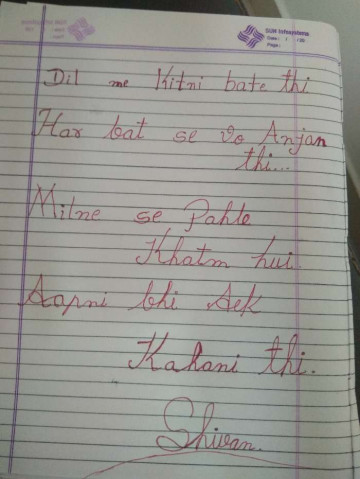 SUN Infosystems
Date: / /20
Page:
Dil me Kitni bate thi
Har bat se vo Anjan
thi...
Milne se Pahle
Khatm hui
Aapni bhi Aek
Kahani thi.
Shivan.